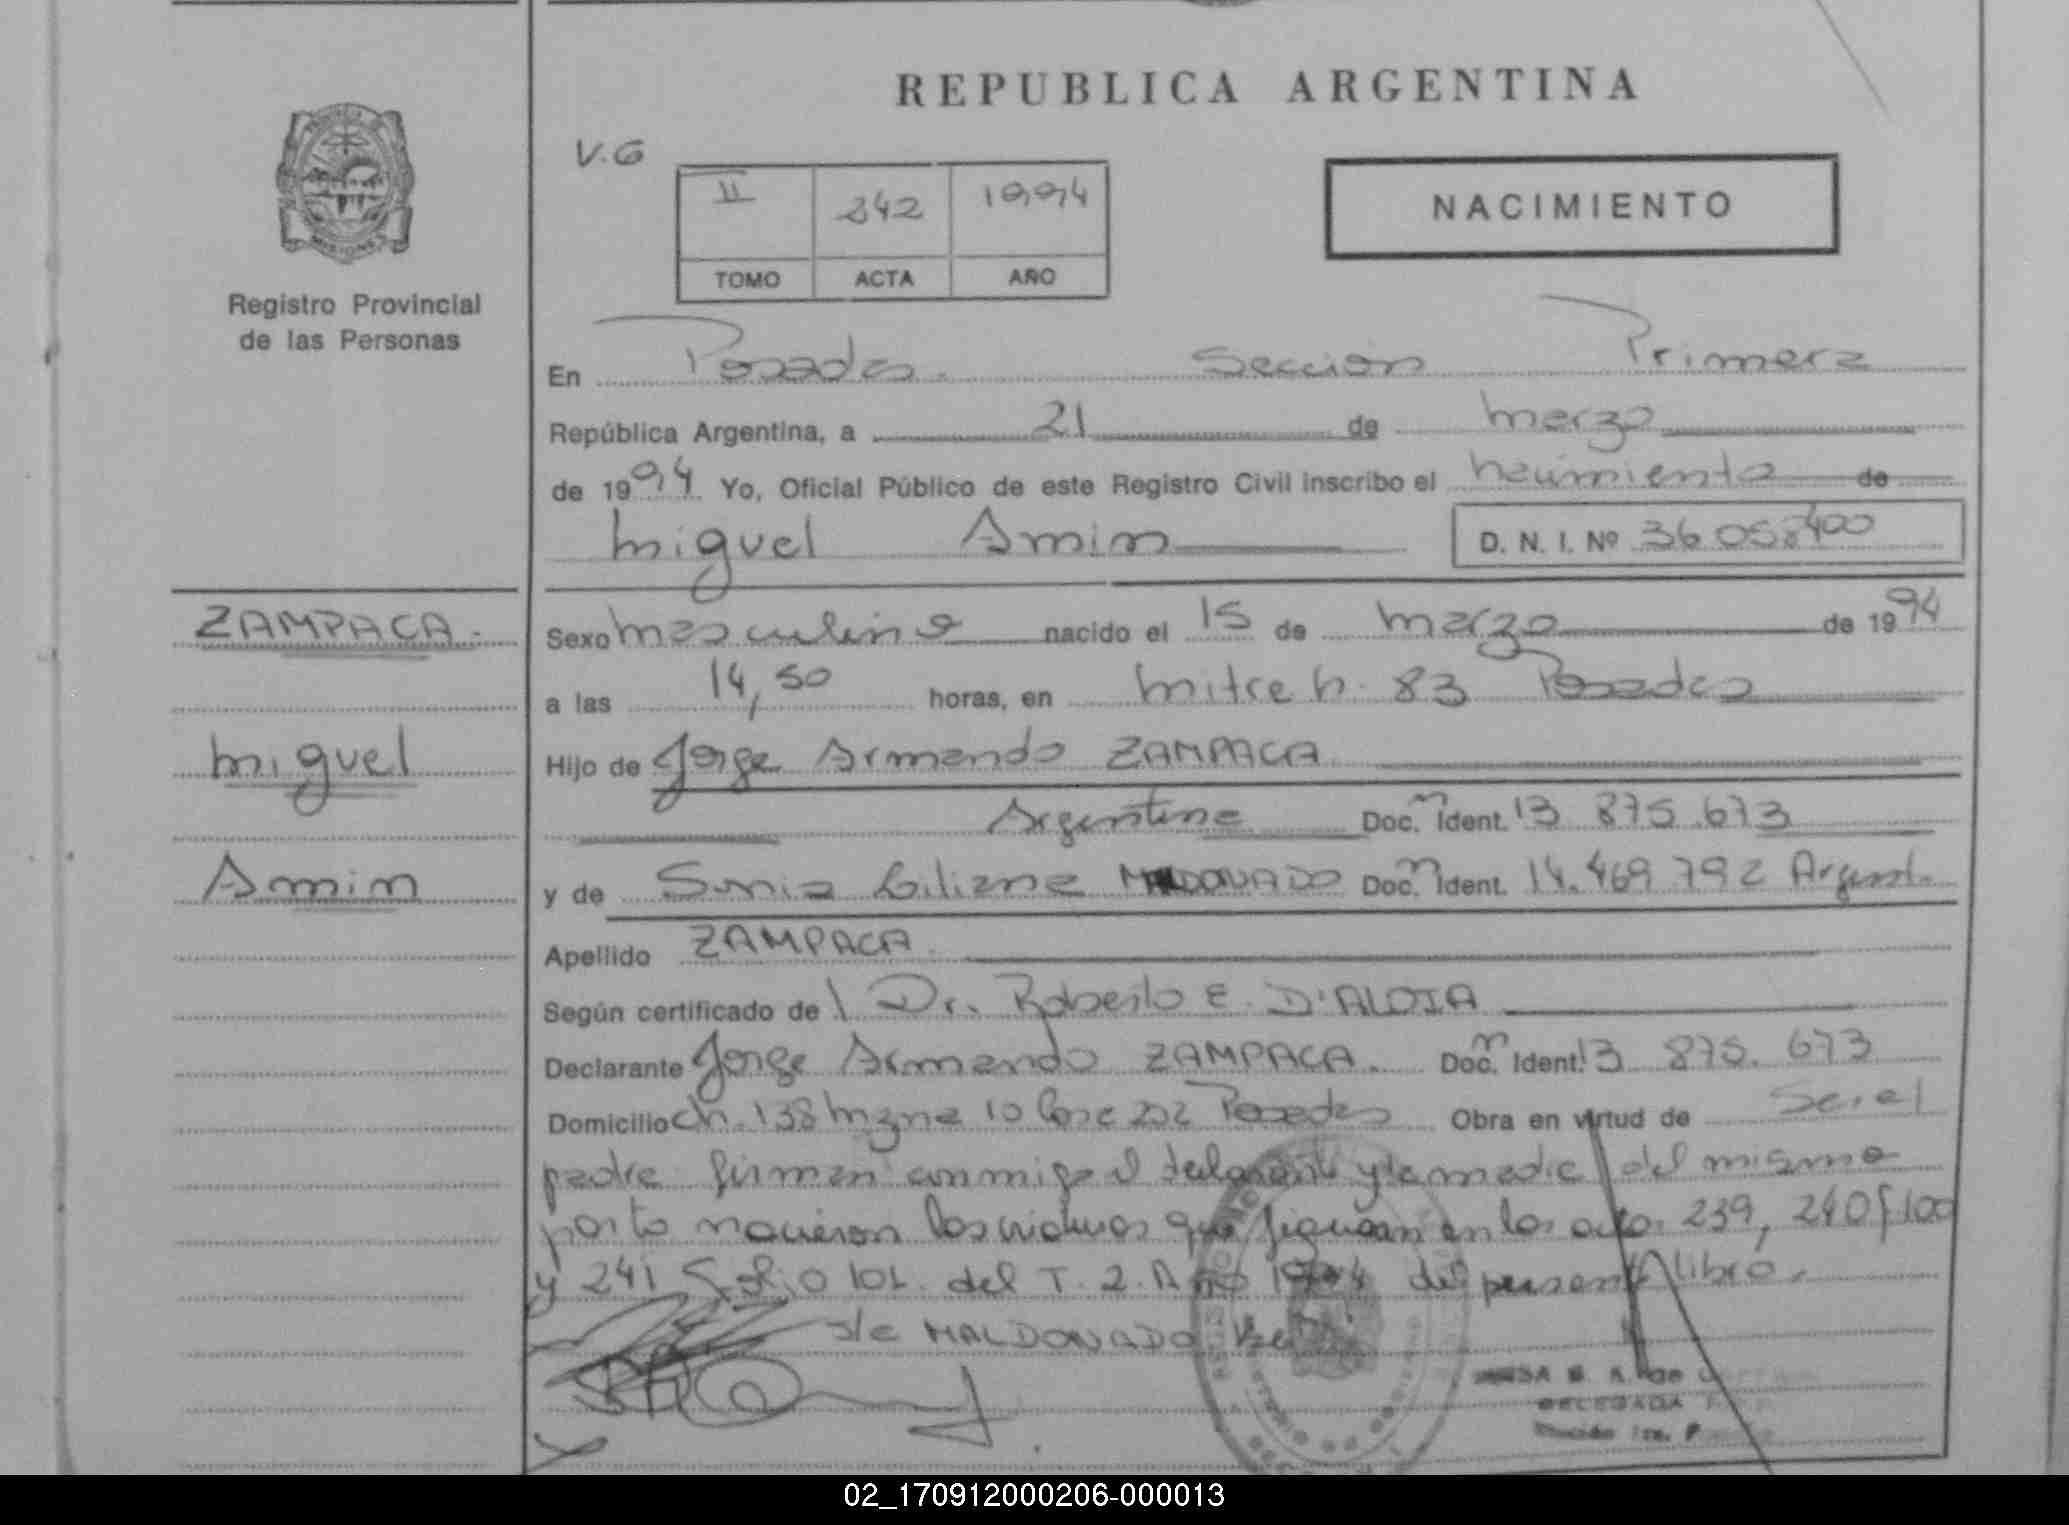 REPUBLICA ARGENTINA
V.G
II 242 1994
TOMO ACTA AÑO
NACIMIENTO
MISIONES
Registro Provincial
de las Personas
En Posadas. Sección Primera
República Argentina, a 21 de marzo
de 1994 Yo, Oficial Público de este Registro Civil inscribo el nacimiento de
Miguel Amin D. N. I. Nº 36.058.400
ZAMPACA.
Miguel
Amin
Sexo masculino nacido el 15 de marzo de 1994
a las 14,50 horas, en Mitre n. 83 Posadas
Hijo de Jorge Armando ZAMPACA
Argentino Doc. Ident. 13 875.673
y de Sonia Liliana MALDONADO Doc. Ident. 14.469.792 Argent.
Apellido ZAMPACA.
Según certificado de Dr. Roberto E. D'ALOIA
Declarante Jorge Armando ZAMPACA. Doc. Ident. 13 875.673
Domicilio ch. 138 mzna 10 Casa 202 Posadas Obra en virtud de Ser el
padre firman conmigo el declarante y la madre del mismo
parto nacieron los que figuran en las 239, 240 f 100
y 241 Folio 101. del T. 2. Año 1994 del libro.
s/e MALDONADO Vale
DELEGADA
Sección 1ra. P
02_170912000206-000013